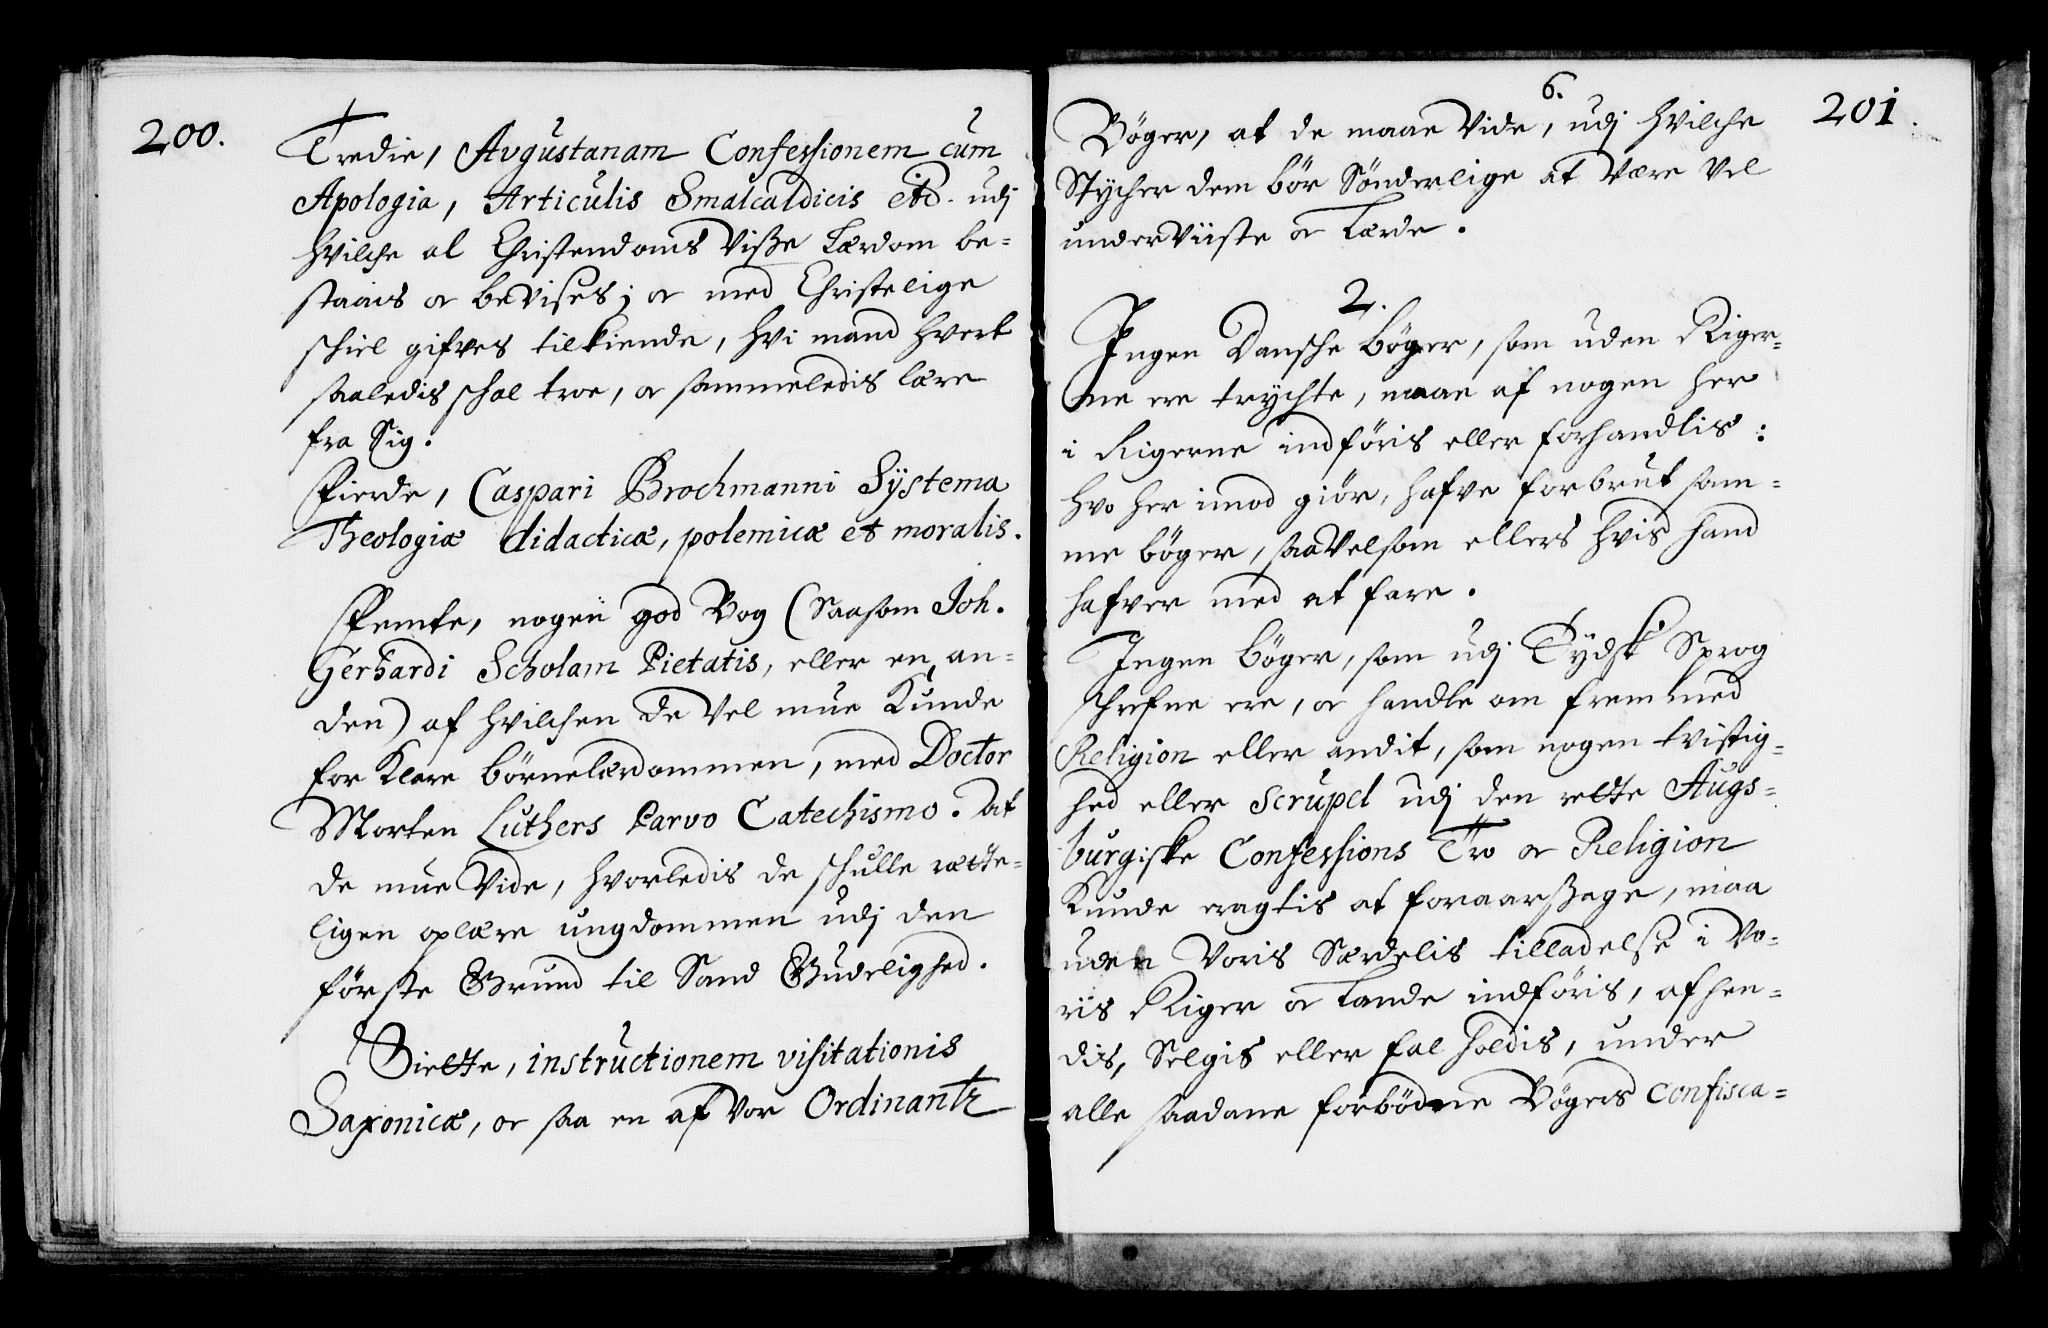 200.
Tredie, Avgustanam Confessionem cum
Apologia, Articulis Smalcaldicis etc. udj
hvilche al Christendoms Visse Lærdom be=
staais or beVises; or med Christelige
schiel gifves tilkiende, hvi mand hvert
saaledis schal troe, or sammeledis lære
fra Sig.
Fierde, Caspari Brochmanni Systema
Theologiæ didacticæ, polemicæ et moralis.
Femte, nogen god Bog (Saasom Joh.
Gerhardi Scholam Pietatis, eller en an=
den) af hvilchen de Vel mue Kunde
for Klare børnelærdommen, med Doctor
Morten Luthers Parvo Catechismo. At
de mue Vide, hvorledis de schulle rætte=
ligen oplære ungdommen udj den
første Grund til Sand Gudelighed.
Siette, instructionem visitationis
Saxonicæ, or saa en af Vor Ordinantz
6.
201.
Bøger, at de maae Vide, udj hvilche
Stycher dem bør Sønderlige at Være Vel
underViiste or Lærde.
2.
Ingen Dansche bøger, som uden Riger=
ne ere trychte, maae af nogen her
i Rigerne indføris eller forhandlis:
hvo her imod giør, hafve forbrut sam=
me bøger, saaVelsom ellers hvis hand
hafver med at fare.
Ingen bøger, som udj Tydsk Sprog
schrefne ere, or handle om fremmed
Religion eller andit, som nogen tvistig=
hed eller Scrupel udj den rette Augs=
burgiske Confessions Tro or Religion
Kunde eragtis at foraarsage, maa
uden Voris Særdelis tilladelse i Vo=
ris Riger or Lande indføris, afhen=
dis, Selgis eller fal holdis, under
alle saadane forbødne Bøgers Confisca=